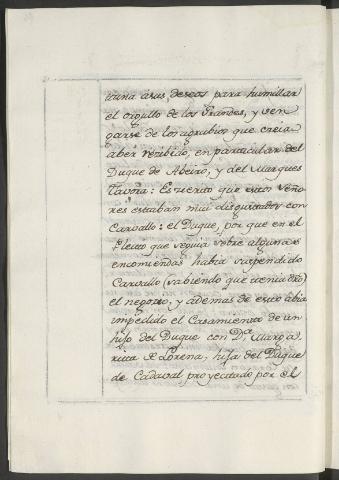 tuna á sus deseos para humillar
el orgullo de los Grandes, y ven
garse de los agrabios que creia
aber recibido, en particular del
Duque de Abeiro, y del Marques
Tavora: Es cierto que estos Seño
res estaban mui disgustados con
Carvallo: el Duque, por que en el
Pleito que seguia sobre algunas
encomiendas habia suspendido
Carvallo (sabiendo que tenia dro)
el negocio, y ademas de esto abia
impedido el Casamiento de un
hijo del Duque con Dª Marga
rita de Lorena, hija del Duque
de Cadaval proyectado por el